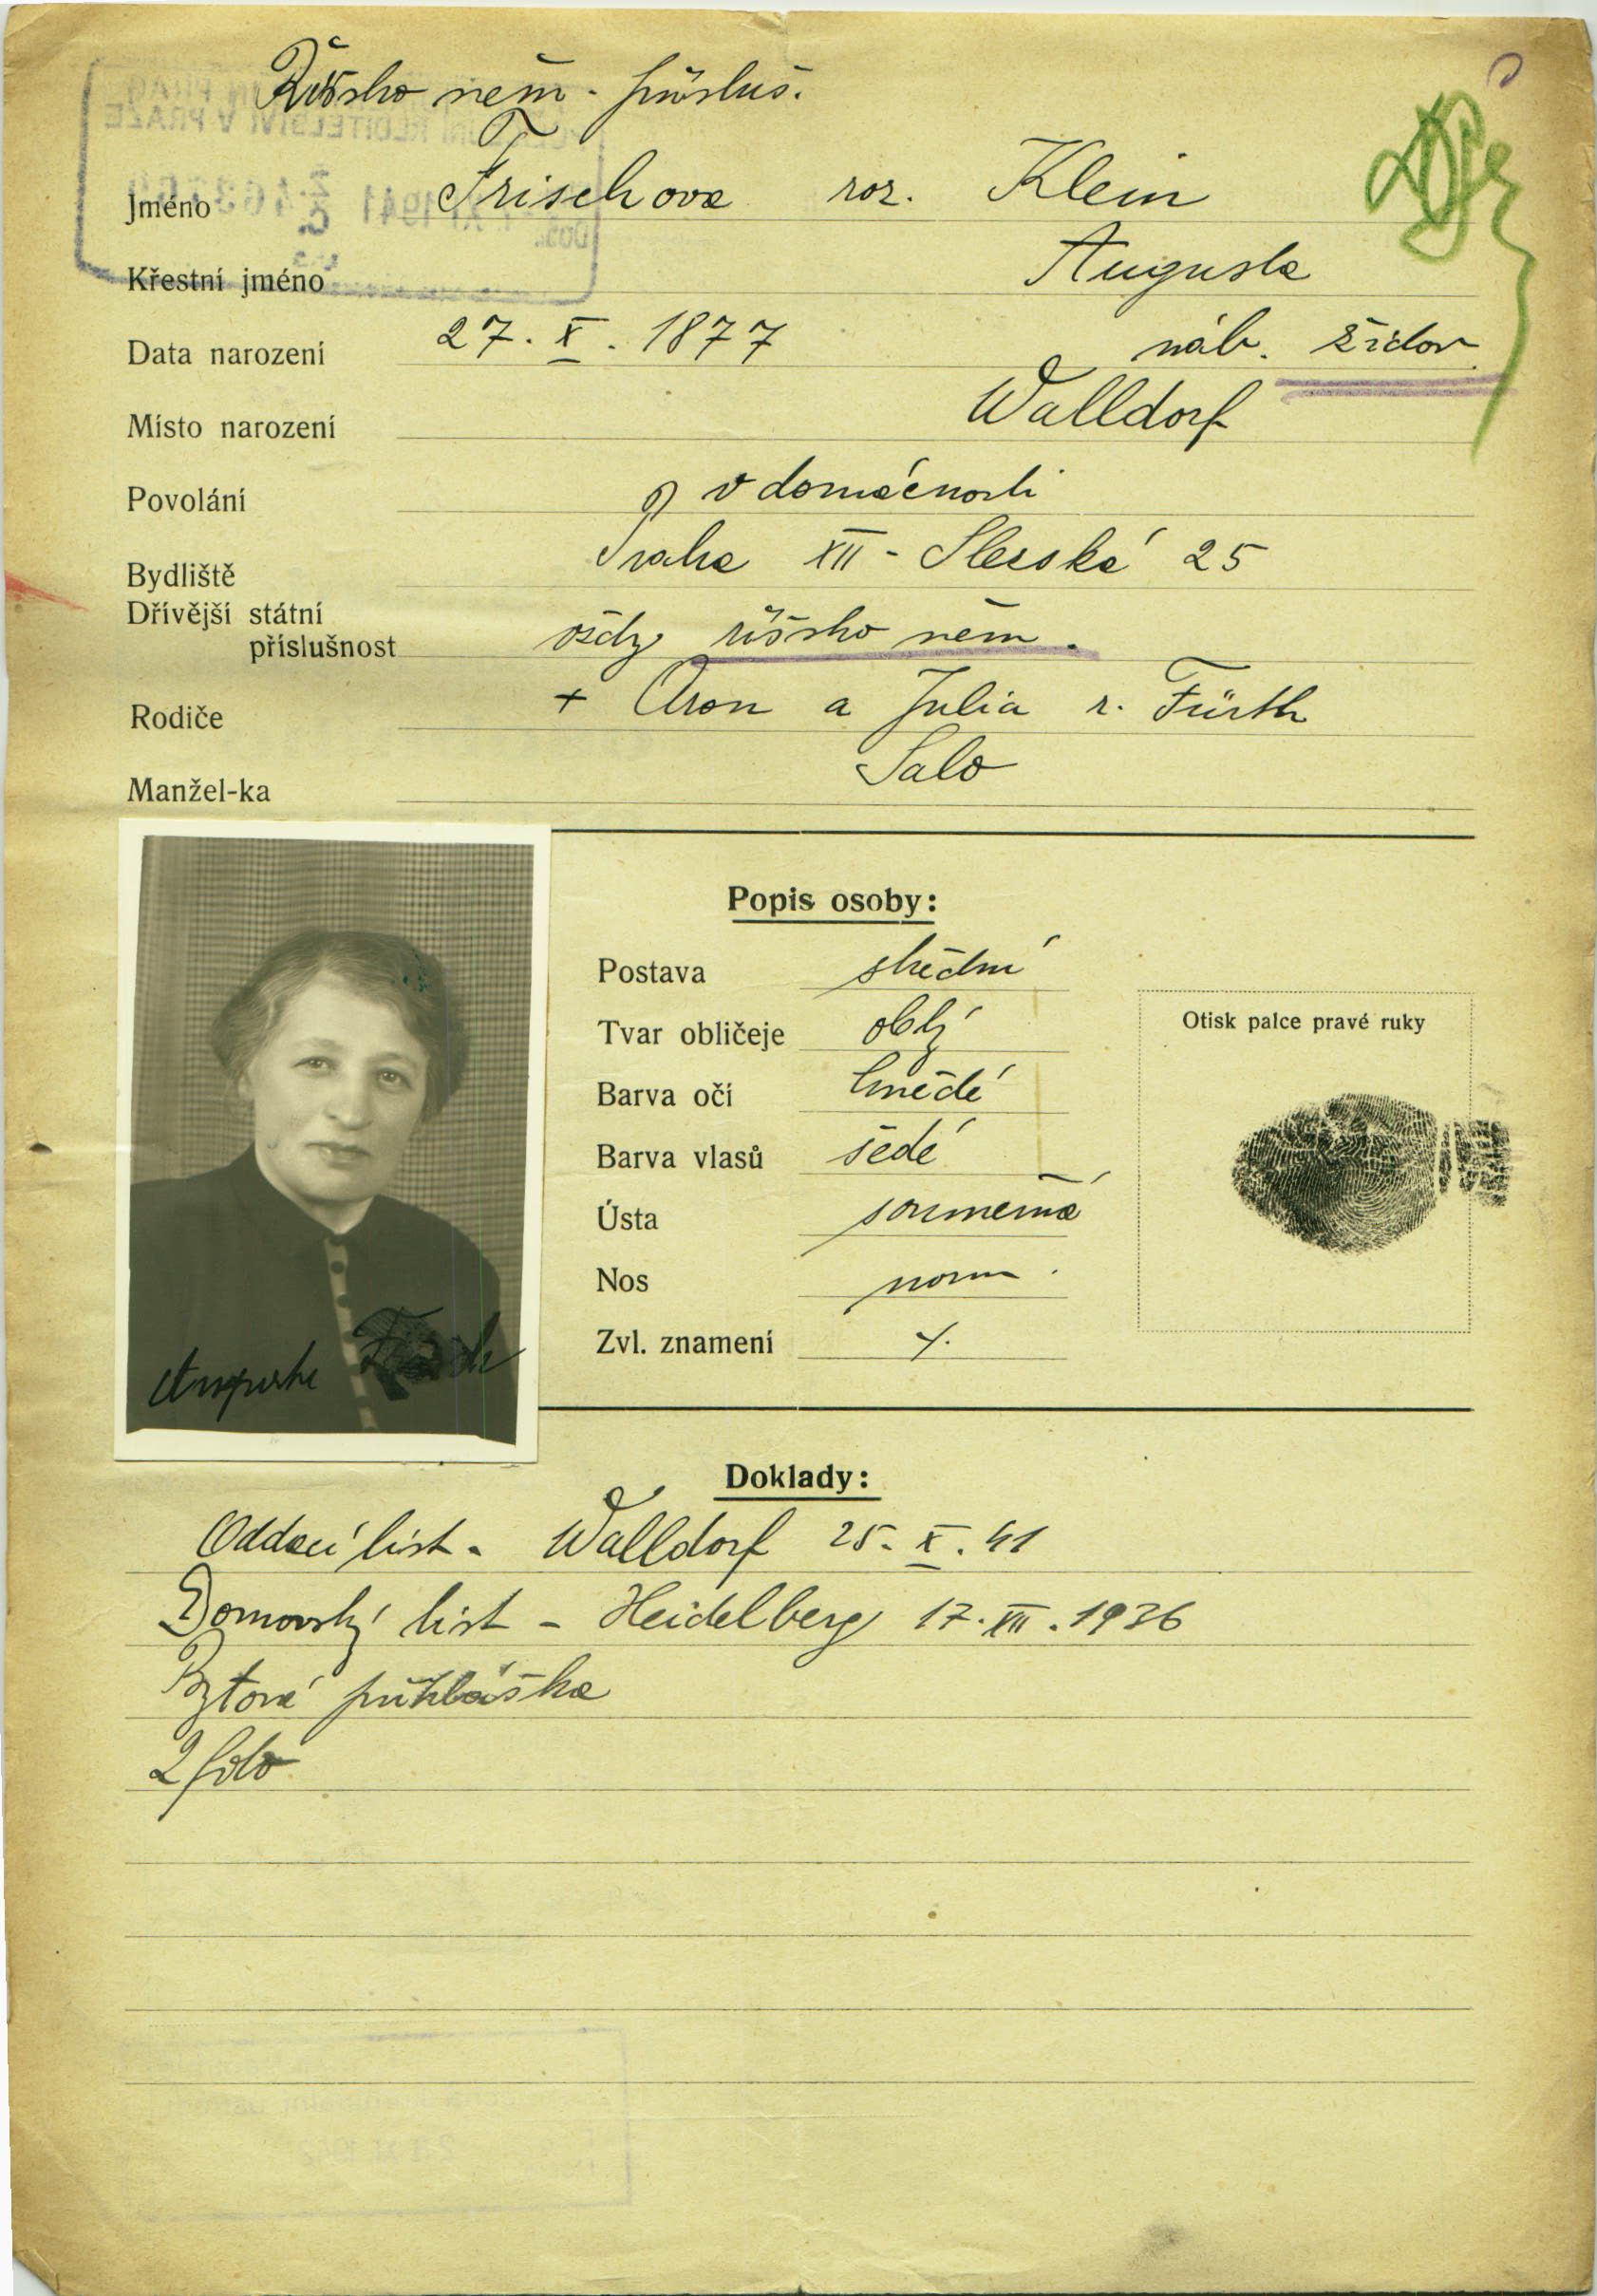 Říšsko něm. přísluš.
Jméno Frischova roz. Klein
Křestní jméno Augusta
Data narození 27. X. 1877 náb. židov.
Místo narození Walldorf
Povolání v domácnosti
Bydliště Praha XII - Slezská 25
Dřívější státní
příslušnost vždy říšsko něm.
Rodiče + Aron a Julia r. Fürth
Manžel-ka Salo
Popis osoby:
Postava střední
Tvar obličeje oblý
Otisk palce pravé ruky
Barva očí hnědé
Barva vlasů šedé
Ústa souměrná
Nos norm.
Zvl. znamení
Augusta
Doklady:
Oddací list - Walldorf 25. X. 41
Domovský list - Heidelberg 17. VII. 1936
Bytová přihláška
2 foto